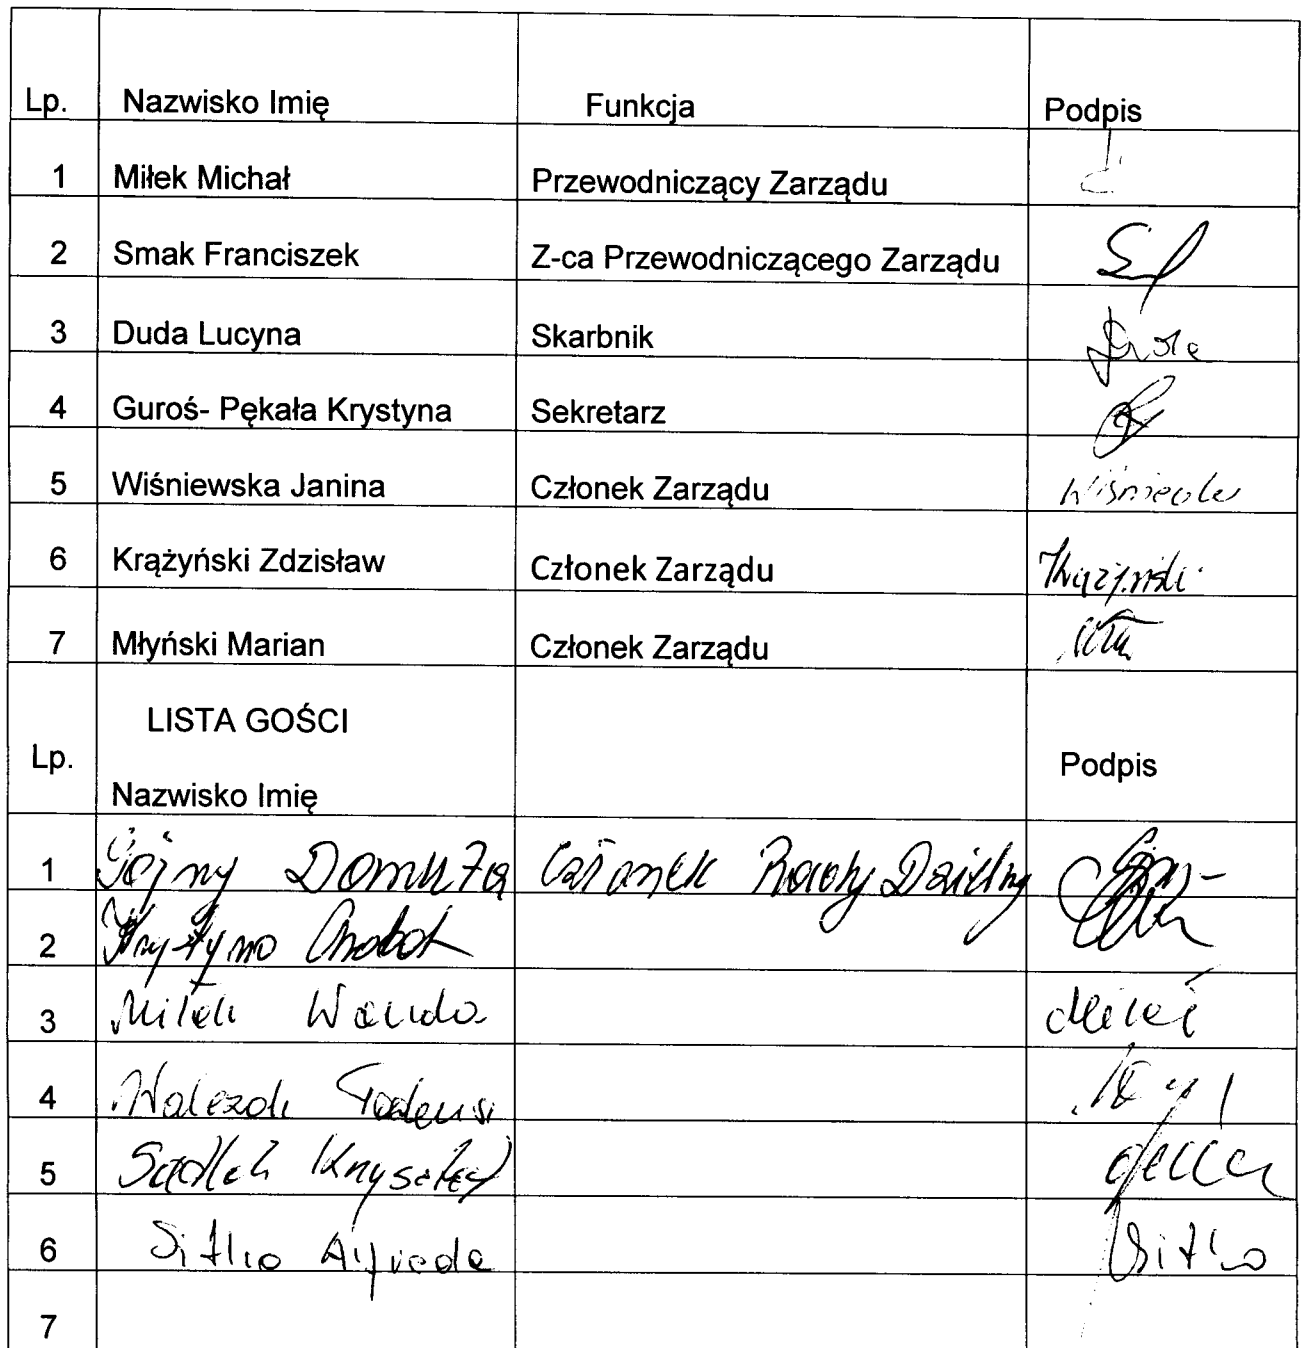 Lp. Nazwisko Imię Funkcja Podpis
1 Miłek Michał Przewodniczący Zarządu
2 Smak Franciszek Z-ca Przewodniczącego Zarządu
3 Duda Lucyna Skarbnik
4 Guroś- Pękała Krystyna Sekretarz
5 Wiśniewska Janina Członek Zarządu
6 Krążyński Zdzisław Członek Zarządu Krążyński
7 Młyński Marian Członek Zarządu
LISTA GOŚCI
Lp. Podpis
Nazwisko Imię
1 Gojny Członek Rady Dzielny
2 Krystyna Chobot
3 Miłek Wanda
4 Tadeusz
5 Krysztof
6 Sitko Alfreda Sitko
7